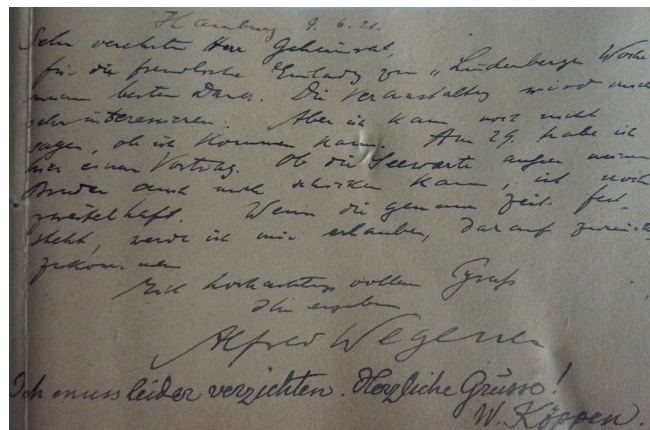 Hamburg 9. 6. 21.
Sehr verehrter Herr Geheimrat,
für die freundliche Einladg zur „Lindenberger Woche
meinen besten Dank. Die Veranstaltg wird mich
sehr interessieren. Aber ich kann noch nicht
sagen, ob ich kommen kann. Am 29. habe ich
hier einen Vortrag. Ob die Seewarte außer meinem
Bruder auch mich schicken kann, ist noch
zweifelhaft. Wenn die genaue Zeit fest-
steht, werde ich mir erlauben, darauf zurück-
zukommen
Mit hochachtungsvollem Gruß
Ihr ergebener
Alfred Wegener
Ich muss leider verzichten. Herzliche Grüsse!
W. Köppen.